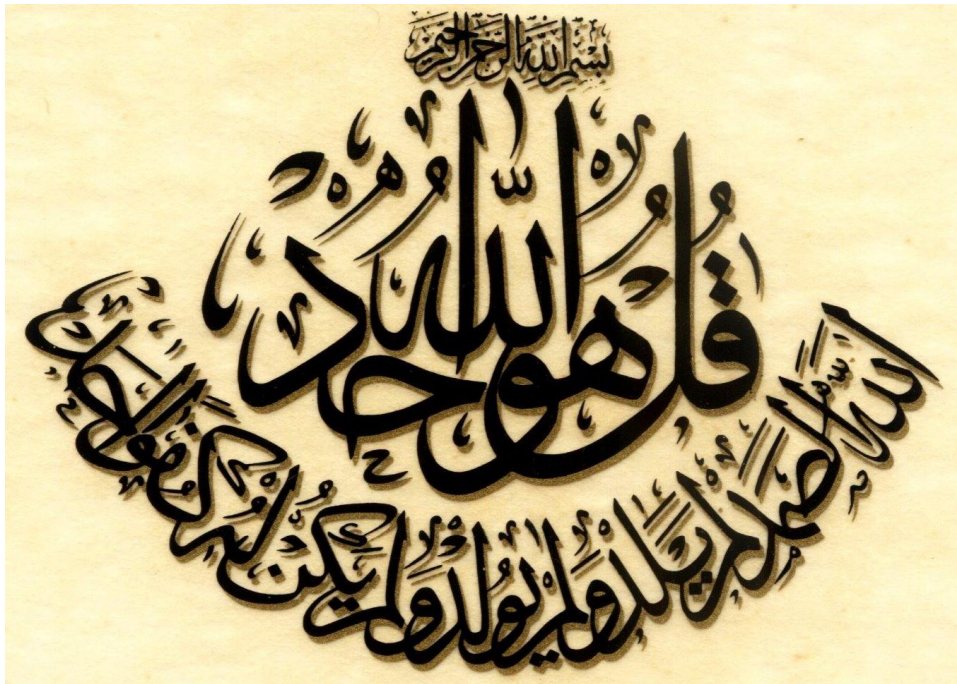 بِسْمِ اللهِ الرَّحْمٰنِ الرَّحِيْمِ
قُلْ هُوَ اللّٰهُ أَحَدٌ
اللّٰهُ الصَّمَدُ لَمْ يَلِدْ وَلَمْ يُولَدْ وَلَمْ يَكُنْ لَهُ كُفُوًا أَحَدٌ